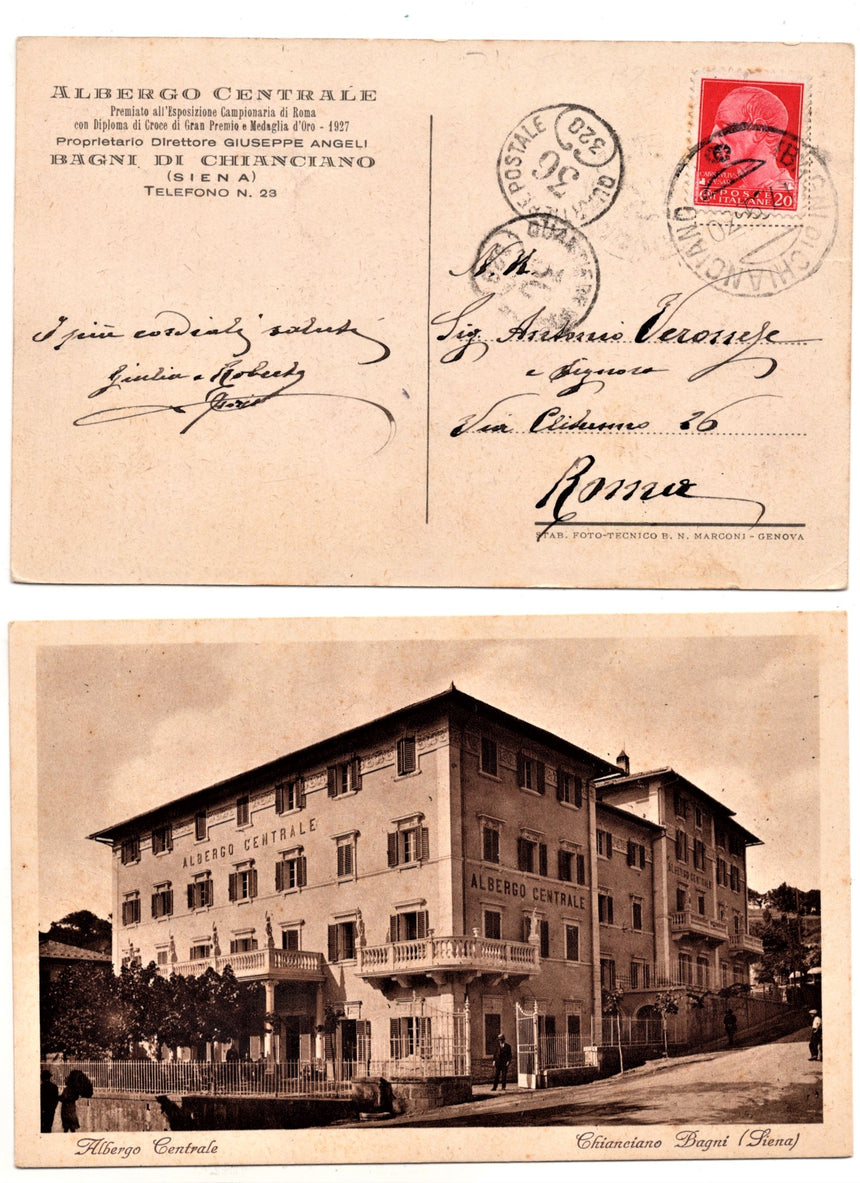 ALBERGO CENTRALE
Premiato all'Esposizione Campionaria di Roma
con Diploma di Croce di Gran Premio e Medaglia d'Oro - 1927
Proprietario Direttore GIUSEPPE ANGELI
BAGNI DI CHIANCIANO
(SIENA)
TELEFONO N. 23
I più cordiali saluti
Giulia e Roberto
QUARTIERE POSTALE
36
320
QUARTIERE
POSTE ITALIANE 20
BAGNI DI CHIANCIANO
N. H.
Sig. Antonio Veronese
e Signora
Via Clitunno 26
Roma
STAB. FOTO-TECNICO B. N. MARCONI - GENOVA
ALBERGO CENTRALE
ALBERGO CENTRALE
ALBERGO CENTRALE
Albergo Centrale
Chianciano Bagni (Siena)